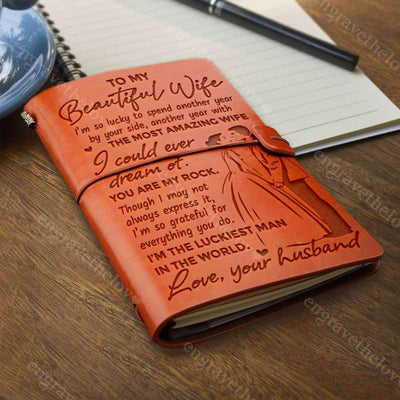 TO MY
Beautiful Wife
I'm so lucky to spend another year
by your side, another year with
THE MOST AMAZING WIFE
I could ever
dream of.
YOU ARE MY ROCK.
Though I may not
always express it,
I'm so grateful for
everything you do.
I'M THE LUCKIEST MAN
IN THE WORLD.
Love, your husband